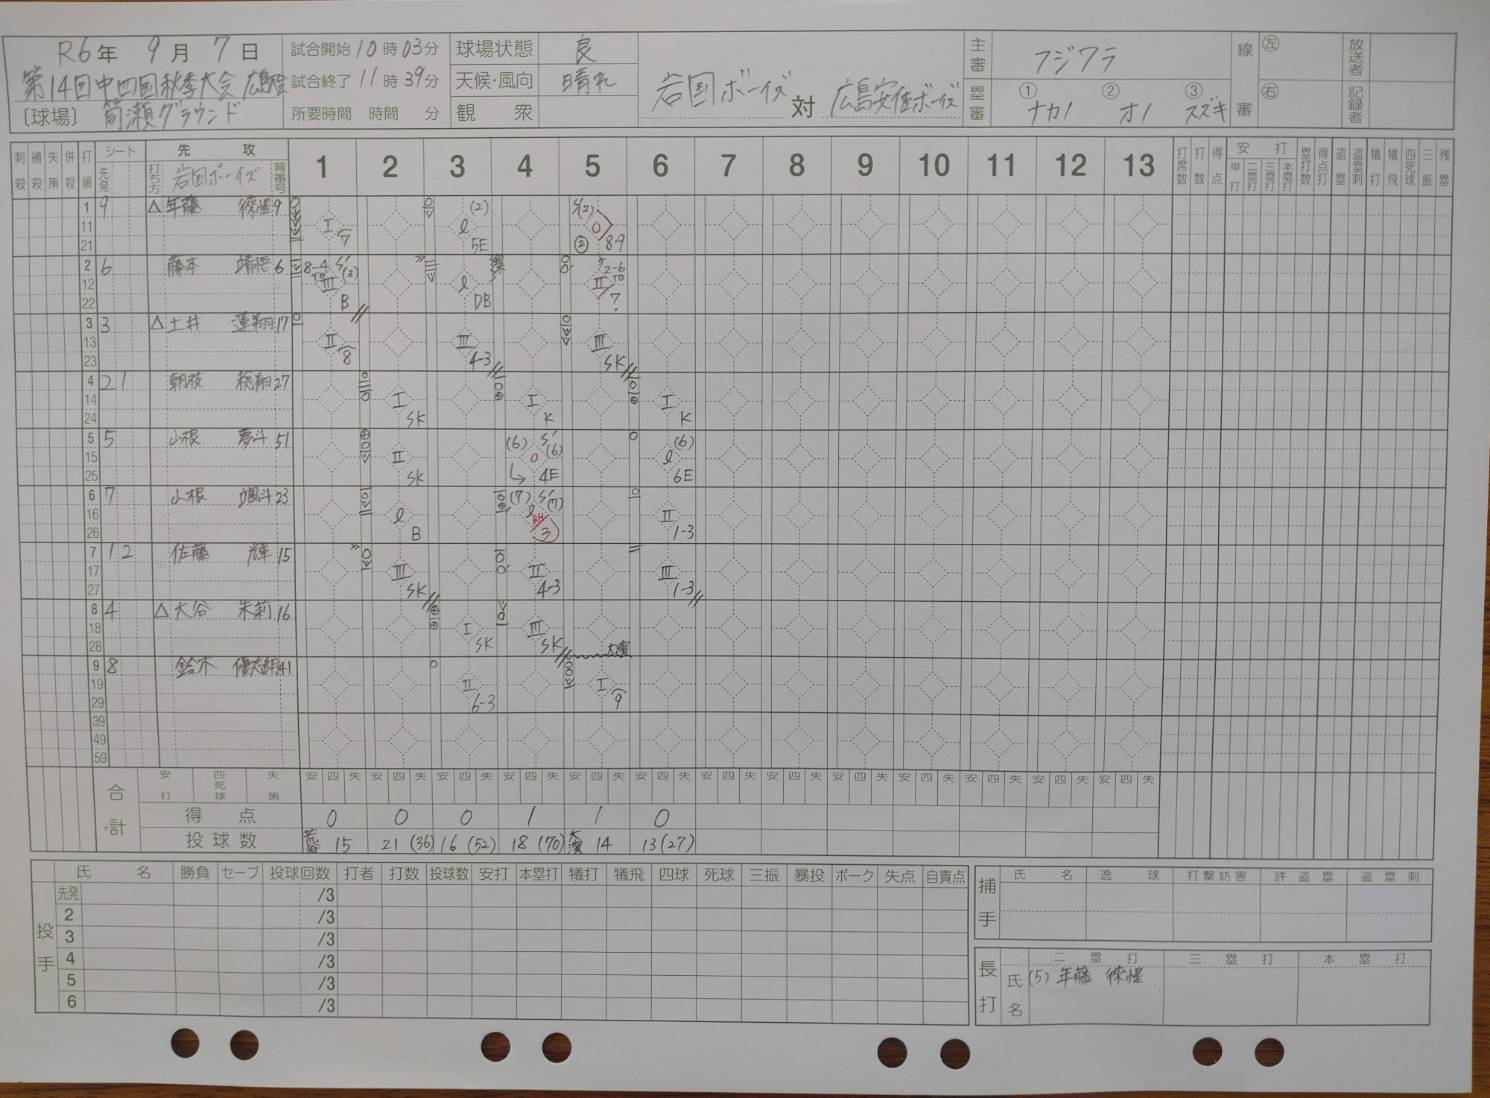 R6年 9月 7日
第14回中四国秋季大会 広島
〔球場〕 筒瀬グラウンド
試合開始 10時03分
試合終了 11時39分
所要時間 時間 分
球場状態 良
天候・風向 晴れ
観衆
岩国ボーイズ 対 広島安佐ボーイズ
主審 フジワラ
塁審 ① ナカノ ② オノ ③ スズキ
線審 左 右
放送者
記録者
刺殺 補殺 失策 併殺 打順 シート 先発 打ち方 先攻 岩国ボーイズ 背番号 1 2 3 4 5 6 7 8 9 10 11 12 13 打席数 打数 得点 安打 単打 二塁打 三塁打 本塁打 塁打数 得点打 盗塁 盗塁刺 犠打 犠飛 四死球 三振 残塁
1 9 △ 9 I 7 (2) l 5E (2) ② 8-9
11
21
2 6 藤本 靖悟 6 8-4 TO III (3) B l DB 2-6 TO II 7
12
22
3 3 △ 土井 蓮翔 17 II 8 III 4-3 III SK
13
23
4 21 朝枝 27 I SK I K I K
14
24
5 5 山根 夢斗 51 II SK (6) S' (6) 4E (6) l 6E
15
25
6 7 山根 颯斗 23 l B (7) S' (7) l BH 3 II 1-3
16
26
7 12 佐藤 輝 15 III SK II 4-3 III 1-3
17
27
8 4 △ 大谷 朱莉 16 I SK III SK
18
28
9 8 鈴木 優太朗 41 II 6-3 I 9
19
29
39
49
59
合計 安打 四死球 失策 安 四 失 安 四 失 安 四 失 安 四 失 安 四 失 安 四 失 安 四 失 安 四 失 安 四 失 安 四 失 安 四 失 安 四 失 安 四 失
得点 0 0 0 1 1 0
投球数 15 21 (36) 16 (52) 18 (70) 14 13 (27)
投手 氏名 勝負 セーブ 投球回数 打者 打数 投球数 安打 本塁打 犠打 犠飛 四球 死球 三振 暴投 ボーク 失点 自責点
先発 /3
2 /3
3 /3
4 /3
5 /3
6 /3
捕手 氏名 逸球 打撃妨害 許盗塁 盗塁刺
長打 氏名 二塁打 三塁打 本塁打
(5)